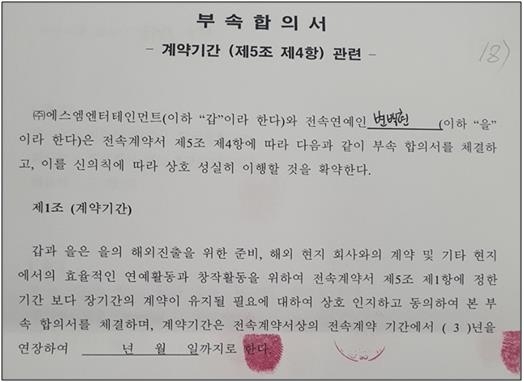 부속합의서
- 계약기간 (제5조 제4항) 관련 -
18)
㈜에스엠엔터테인먼트(이하 “갑”이라 한다)와 전속연예인 변백현 (이하 “을”
이라 한다)은 전속계약서 제5조 제4항에 따라 다음과 같이 부속 합의서를 체결하
고, 이를 신의칙에 따라 상호 성실히 이행할 것을 확약한다.
제1조 (계약기간)
갑과 을은 을의 해외진출을 위한 준비, 해외 현지 회사와의 계약 및 기타 현지
에서의 효율적인 연예활동과 창작활동을 위하여 전속계약서 제5조 제1항에 정한
기간 보다 장기간의 계약이 유지될 필요에 대하여 상호 인지하고 동의하여 본 부
속 합의서를 체결하며, 계약기간은 전속계약서상의 전속계약 기간에서 ( 3 )년을
연장하여 년 월 일까지로 한다.